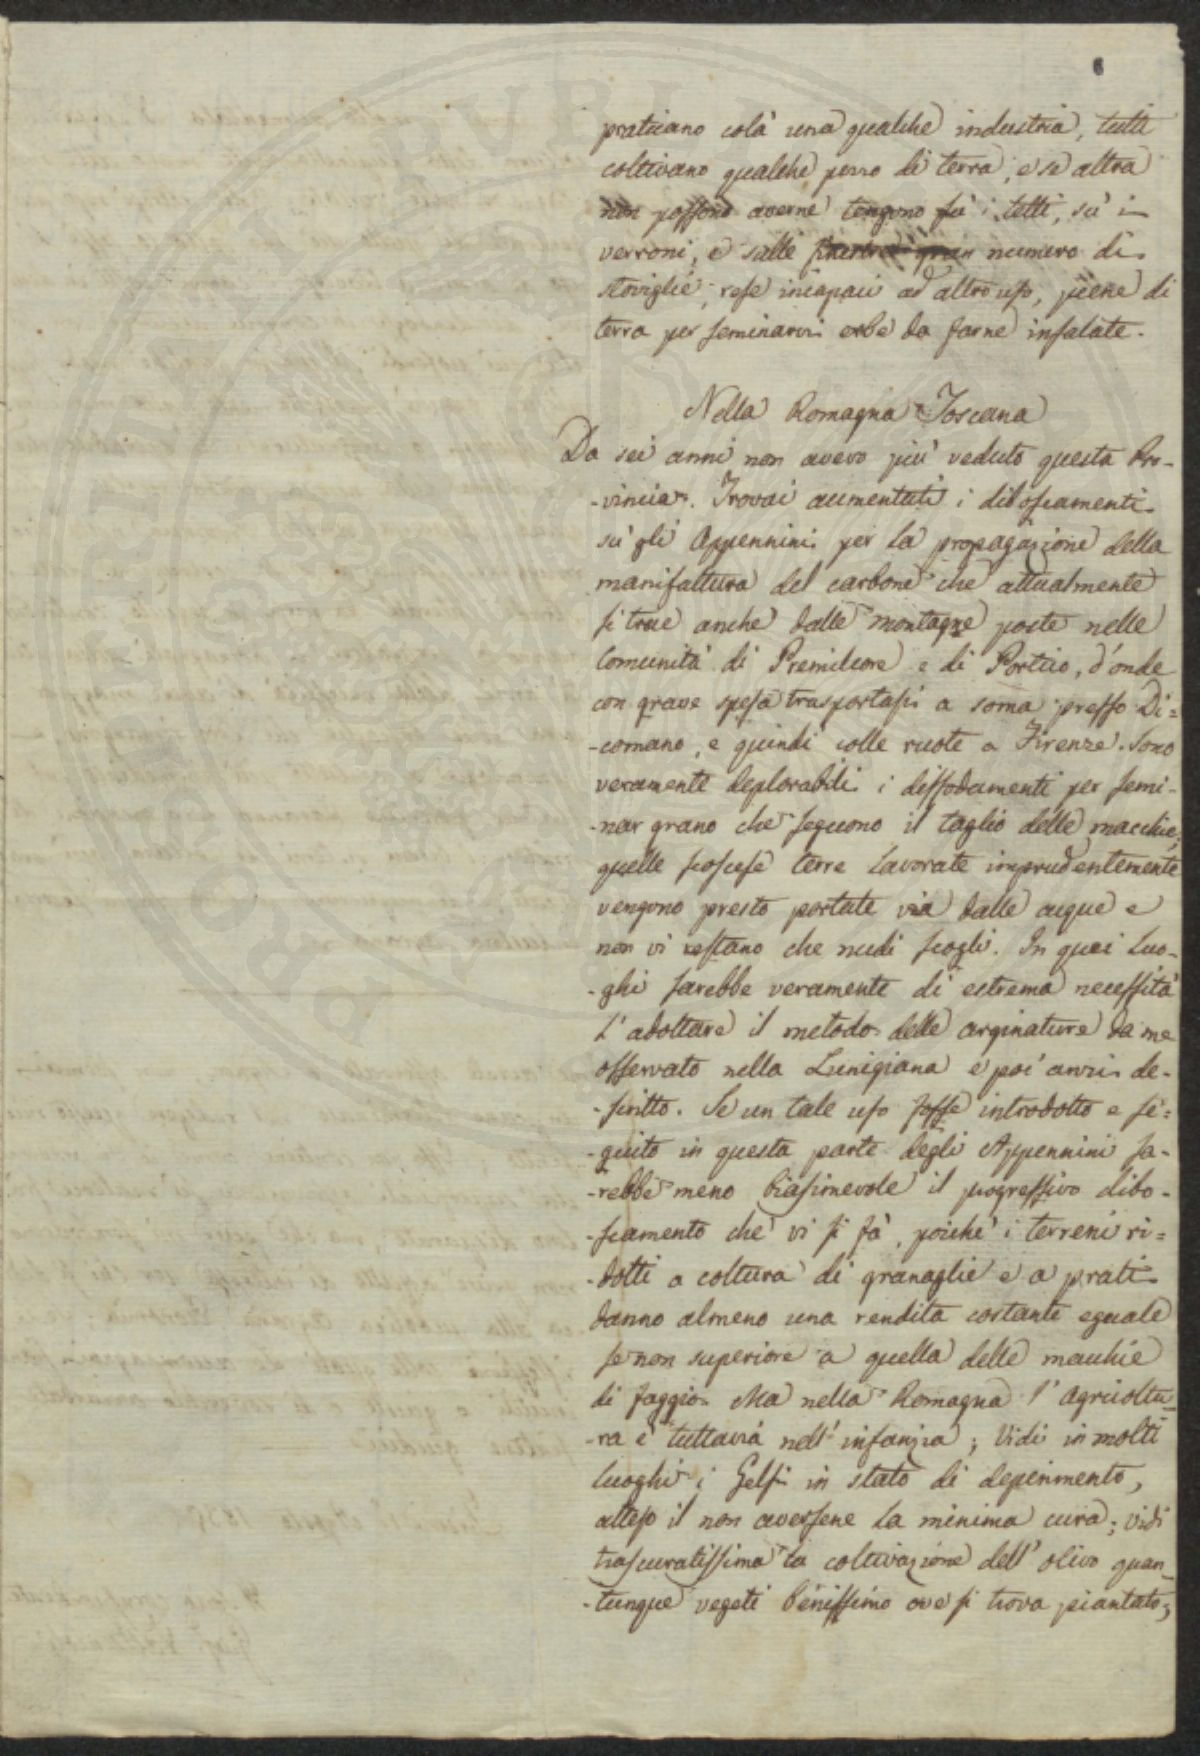 6
praticano colà una qualche industria, tutti
coltivano qualche pezzo di terra, e se altra
non possono averne tengono sù i tetti, sù i
verroni, e sulle finestre gran numero di
stoviglie, rese incapaci ad altro uso, piene di
terra per seminarvi erbe da farne insalate.
Nella Romagna Toscana
Da sei anni non avevo più veduto questa Pro-
-vincia. Trovai aumentati i diboscamenti
sù gli Appennini per la propagazione della
manifattura del carbone che attualmente
si trae anche dalle montagne poste nelle
Comunità di Premilcore e di Portico, d'onde
con grave spesa trasportasi a soma presso Di=
-comano, e quindi colle ruote a Firenze. Sono
veramente deplorabili i dissodamenti per semi-
-nar grano che seguono il taglio delle macchie;
quelle scoscese terre lavorate imprudentemente
vengono presto portate via dalle acque e
non vi restano che nudi scogli. In quei luo-
-ghi sarebbe veramente di estrema necessità
l'adottare il metodo delle arginature da me
osservato nella Lunigiana e poi anzi de-
-scritto. Se un tale uso fosse introdotto e se=
-guito in questa parte degli Appennini sa-
-rebbe meno biasimevole il progressivo dibo-
-scamento che vi si fà, poiche i terreni ri=
-dotti a coltura di granaglie e a prati
danno almeno una rendita costante eguale
se non superiore a quella delle macchie
di faggio. Ma nella Romagna l'agricoltu-
-ra è tuttavia nell'infanzia; Vidi in molti
luoghi i Gelsi in stato di deperimento,
atteso il non aversene la minima cura; vidi
trascuratissima la coltivazione dell'olivo quan-
-tunque vegeti benissimo ove si trova piantato;